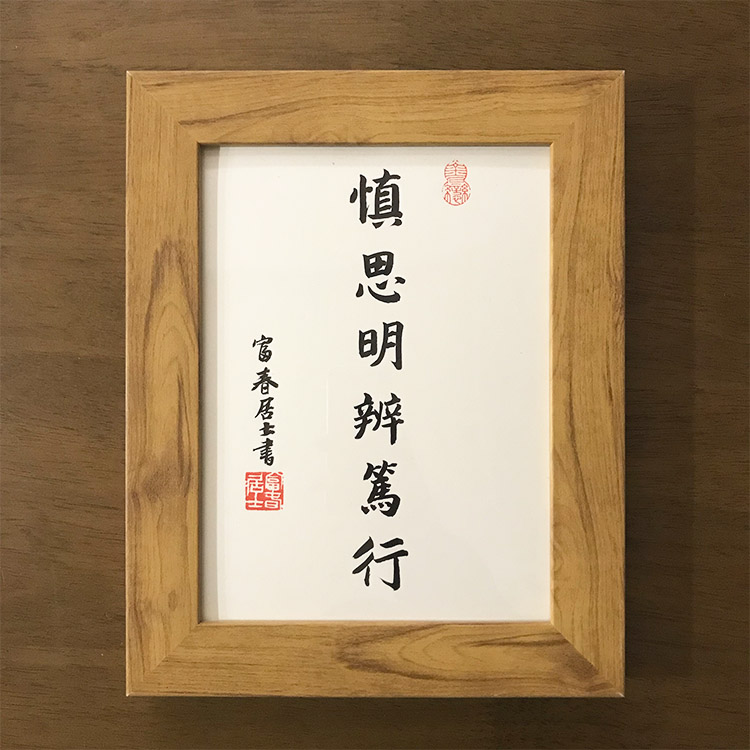 慎思明辨篤行
富春居士書
富春居士